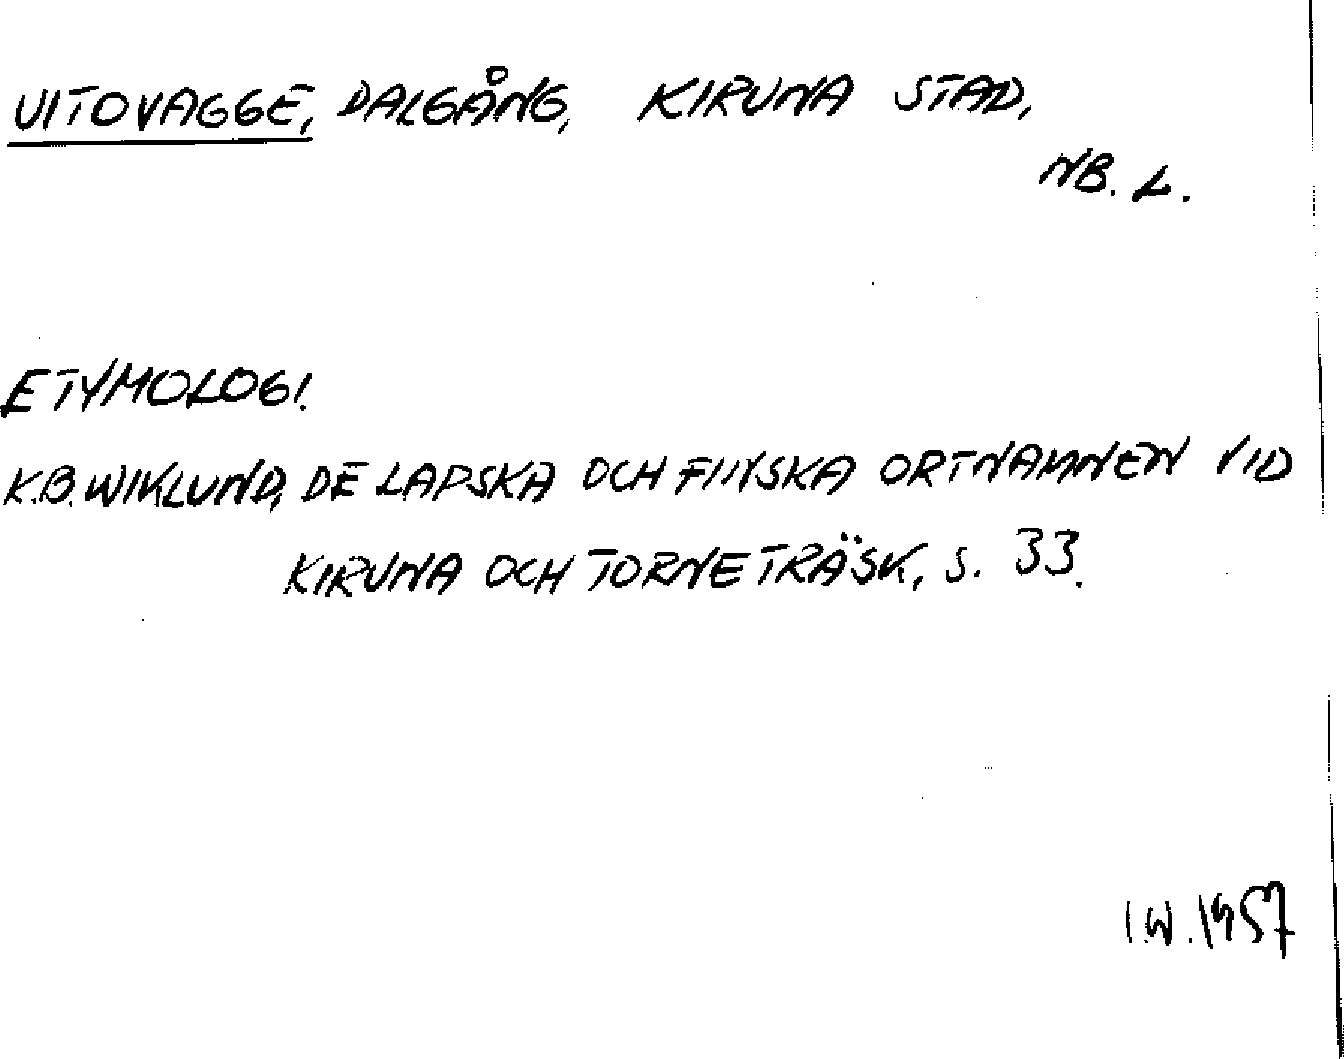 UITOVAGGE, DALGÅNG, KIRUNA STAD,
NB. L.
ETYMOLOGI.
K.B. WIKLUND, DE LAPSKA OCH FINSKA ORTNAMNEN VID
KIRUNA OCH TORNETRÄSK, S. 33.
I.W. 1957